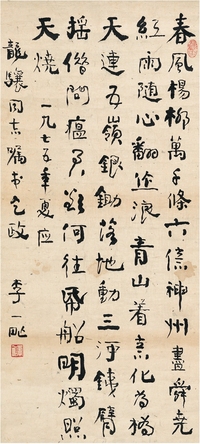 春風楊柳萬千條六億神州盡舜堯
紅雨隨心翻作浪青山着意化為橋
天連五嶺銀鋤落地動三河鐵臂
搖借問瘟君欲何往帋船明燭照
天燒 一九七五年夏应
龍驤同志嘱书乞政
李一氓